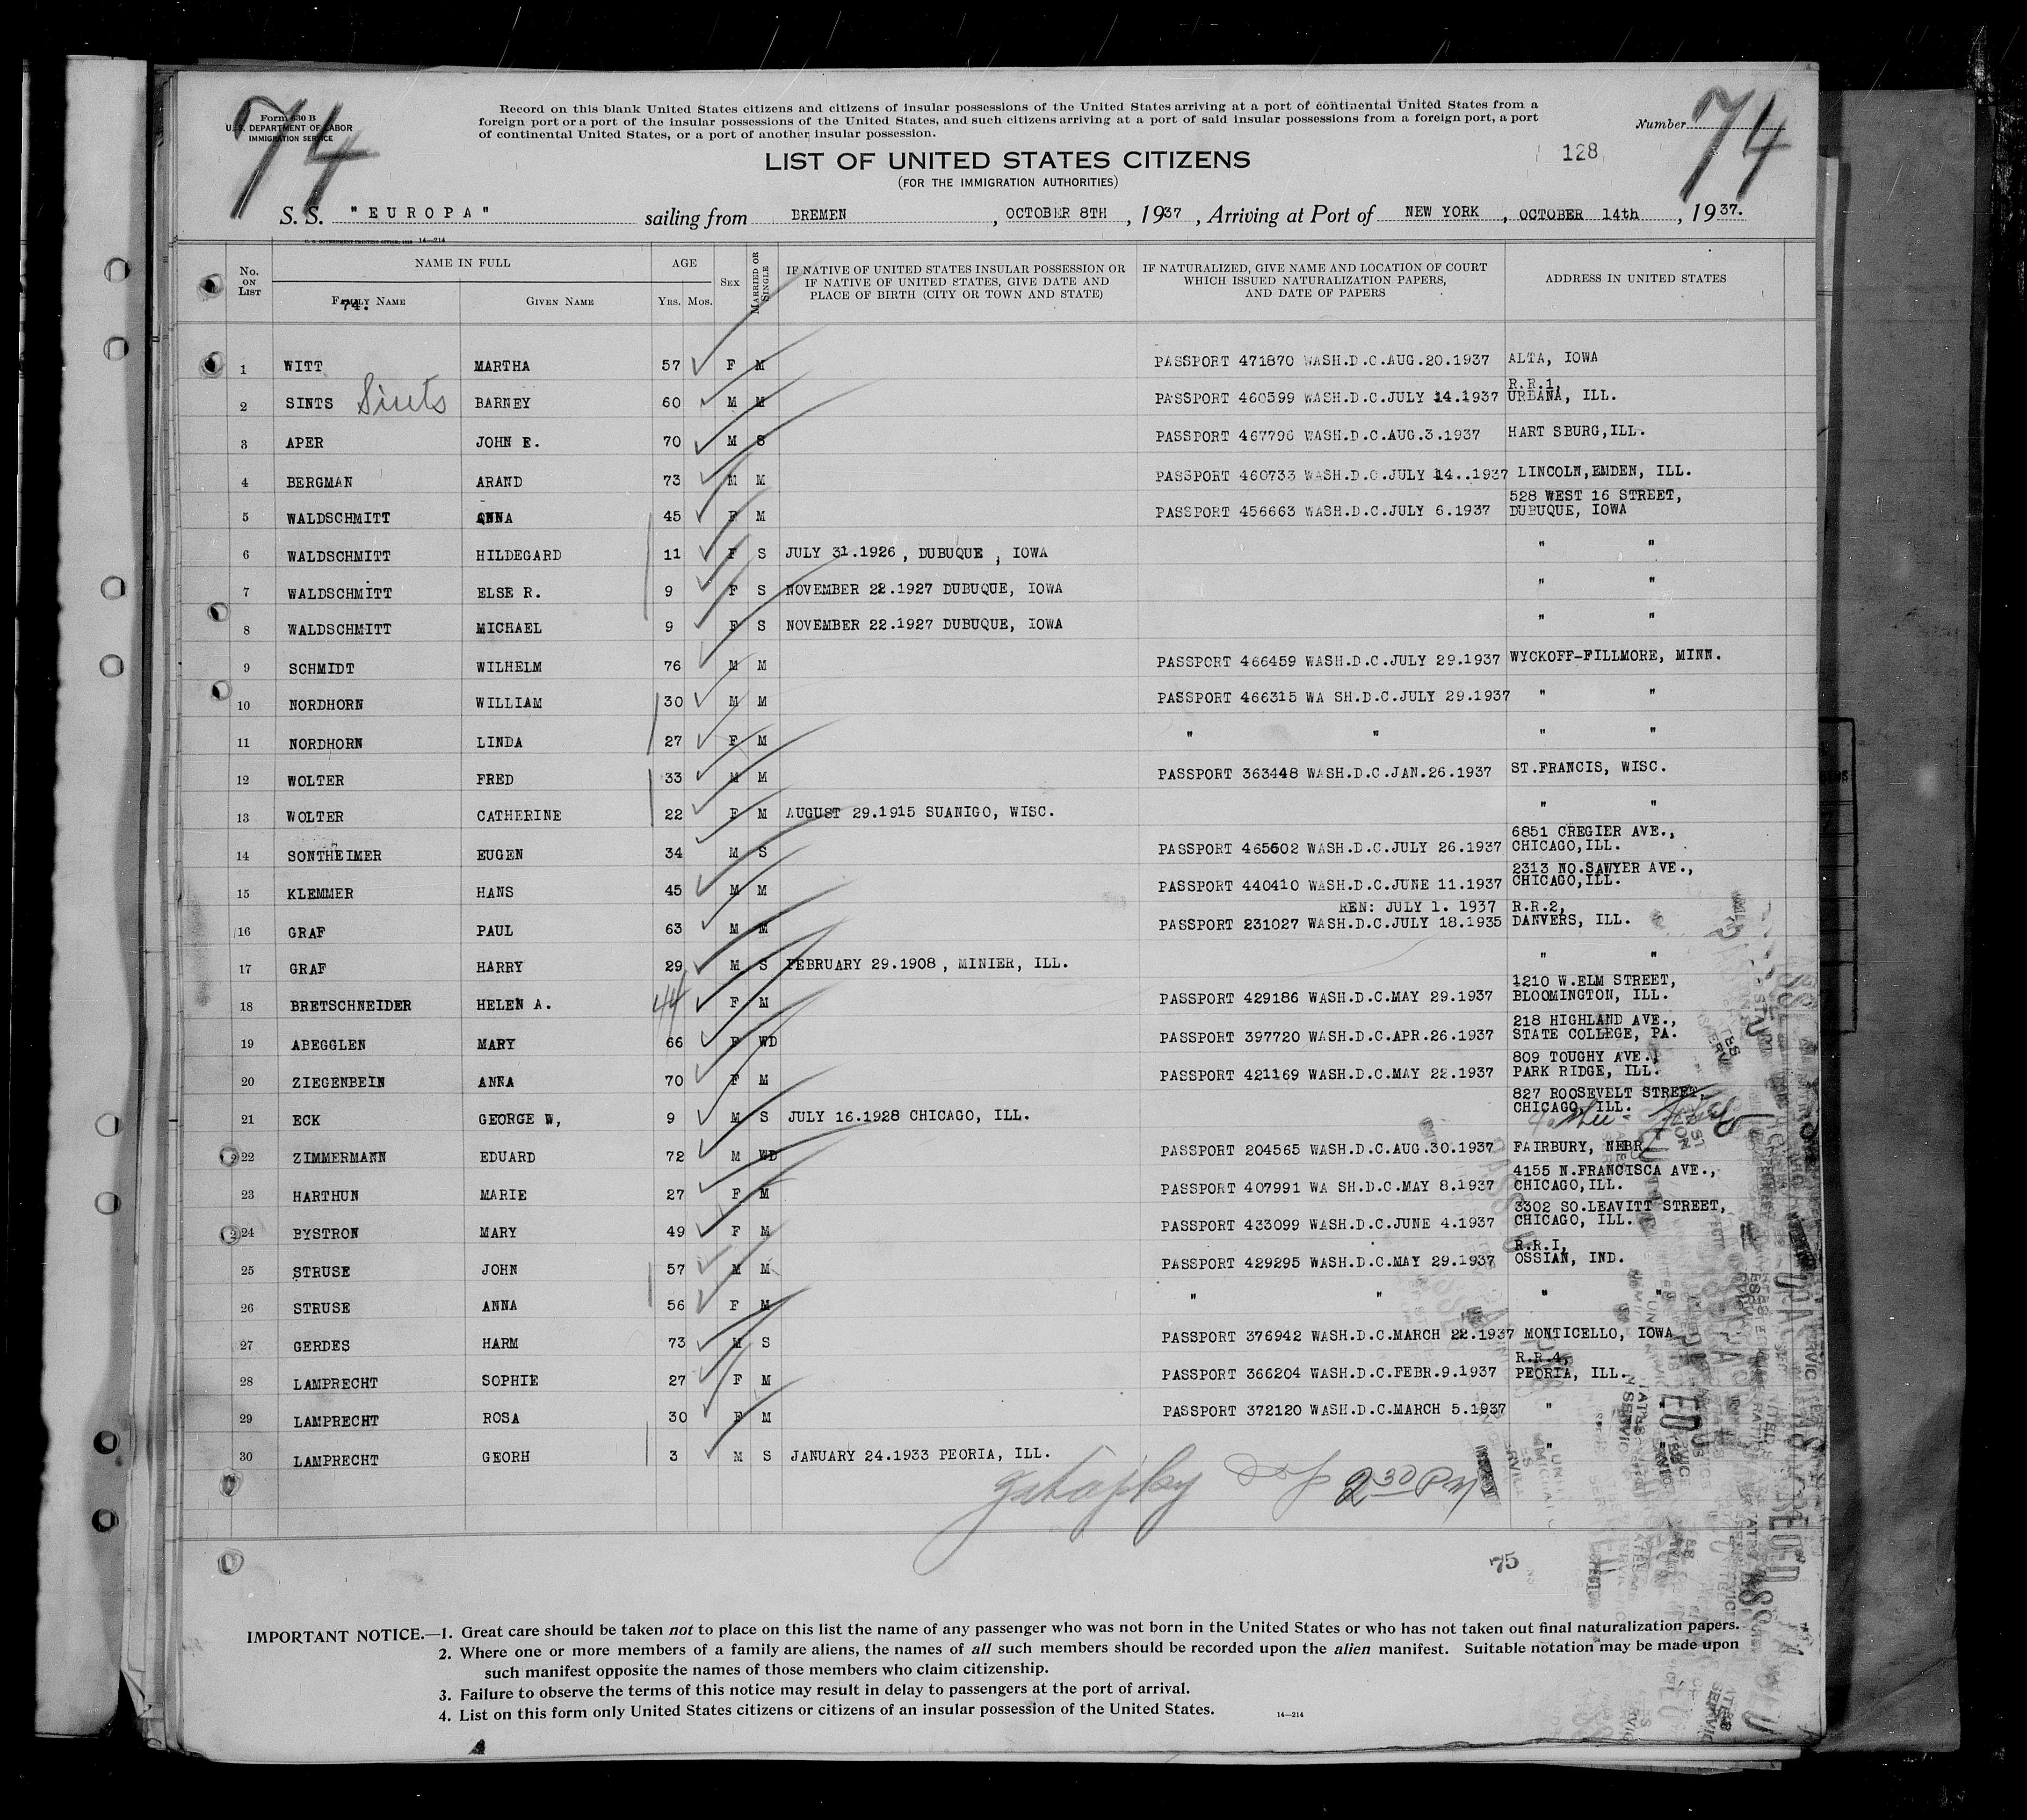 74
74
Form 630 B
U.S. DEPARTMENT OF LABOR
IMMIGRATION SERVICE
Record on this blank United States citizens and citizens of insular possessions of the United States arriving at a port of continental United States from a
foreign port or a port of the insular possessions of the United States, and such citizens arriving at a port of said insular possessions from a foreign port, a port
of continental United States, or a port of another insular possession.
Number
LIST OF UNITED STATES CITIZENS
128
(FOR THE IMMIGRATION AUTHORITIES)
S. S. "EUROPA" sailing from BREMEN, OCTOBER 8TH, 1937, Arriving at Port of NEW YORK, OCTOBER 14th, 1937.
14—214
No. ON LIST
NAME IN FULL
FAMILY NAME
74.
GIVEN NAME
AGE
YRS. MOS.
SEX
MARRIED OR SINGLE
IF NATIVE OF UNITED STATES INSULAR POSSESSION OR
IF NATIVE OF UNITED STATES, GIVE DATE AND
PLACE OF BIRTH (CITY OR TOWN AND STATE)
IF NATURALIZED, GIVE NAME AND LOCATION OF COURT
WHICH ISSUED NATURALIZATION PAPERS,
AND DATE OF PAPERS
ADDRESS IN UNITED STATES
1 WITT MARTHA 57 F M PASSPORT 471870 WASH.D.C.AUG.20.1937 ALTA, IOWA
R.R.1,
2 SINTS Sints BARNEY 60 M M PASSPORT 460599 WASH.D.C.JULY 14.1937 URBANA, ILL.
3 APER JOHN E. 70 M S PASSPORT 467796 WASH.D.C.AUG.3.1937 HART SBURG,ILL.
4 BERGMAN ARAND 73 M M PASSPORT 460733 WASH.D.C.JULY 14..1937 LINCOLN,EMDEN, ILL.
528 WEST 16 STREET,
5 WALDSCHMITT ANNA 45 F M PASSPORT 456663 WASH.D.C.JULY 6.1937 DUBUQUE, IOWA
6 WALDSCHMITT HILDEGARD 11 F S JULY 31.1926 , DUBUQUE , IOWA " "
7 WALDSCHMITT ELSE R. 9 F S NOVEMBER 22.1927 DUBUQUE, IOWA " "
8 WALDSCHMITT MICHAEL 9 F S NOVEMBER 22.1927 DUBUQUE, IOWA " "
9 SCHMIDT WILHELM 76 M M PASSPORT 466459 WASH.D.C.JULY 29.1937 WYCKOFF-FILLMORE, MINN.
10 NORDHORN WILLIAM 30 M M PASSPORT 466315 WA SH.D.C.JULY 29.1937 " "
11 NORDHORN LINDA 27 F M " " " "
12 WOLTER FRED 33 M M PASSPORT 363448 WASH.D.C.JAN.26.1937 ST.FRANCIS, WISC.
13 WOLTER CATHERINE 22 F M AUGUST 29.1915 SUANIGO, WISC. " "
6851 CREGIER AVE.,
14 SONTHEIMER EUGEN 34 M S PASSPORT 465602 WASH.D.C.JULY 26.1937 CHICAGO,ILL.
2313 NO.SAWYER AVE.,
15 KLEMMER HANS 45 M M PASSPORT 440410 WASH.D.C.JUNE 11.1937 CHICAGO,ILL.
REN: JULY 1. 1937 R.R.2,
16 GRAF PAUL 63 M M PASSPORT 231027 WASH.D.C.JULY 18.1935 DANVERS, ILL.
17 GRAF HARRY 29 M S FEBRUARY 29.1908 , MINIER, ILL. " "
1210 W.ELM STREET,
18 BRETSCHNEIDER HELEN A. 44 F M PASSPORT 429186 WASH.D.C.MAY 29.1937 BLOOMINGTON, ILL.
218 HIGHLAND AVE.,
19 ABEGGLEN MARY 66 F WD PASSPORT 397720 WASH.D.C.APR.26.1937 STATE COLLEGE, PA.
809 TOUGHY AVE.,
20 ZIEGENBEIN ANNA 70 F M PASSPORT 421169 WASH.D.C.MAY 22.1937 PARK RIDGE, ILL.
827 ROOSEVELT STREET,
21 ECK GEORGE W, 9 M S JULY 16.1928 CHICAGO, ILL. CHICAGO, ILL.
22 ZIMMERMANN EDUARD 72 M WD PASSPORT 204565 WASH.D.C.AUG.30.1937 FAIRBURY, NEBR.
4155 N.FRANCISCA AVE.,
23 HARTHUN MARIE 27 F M PASSPORT 407991 WA SH.D.C.MAY 8.1937 CHICAGO,ILL.
3302 SO.LEAVITT STREET,
24 BYSTRON MARY 49 F M PASSPORT 433099 WASH.D.C.JUNE 4.1937 CHICAGO, ILL.
R.R.I,
25 STRUSE JOHN 57 M M PASSPORT 429295 WASH.D.C.MAY 29.1937 OSSIAN, IND.
26 STRUSE ANNA 56 F M " " " "
27 GERDES HARM 73 M S PASSPORT 376942 WASH.D.C.MARCH 22.1937 MONTICELLO, IOWA
R.R.4,
28 LAMPRECHT SOPHIE 27 F M PASSPORT 366204 WASH.D.C.FEBR.9.1937 PEORIA, ILL.
29 LAMPRECHT ROSA 30 F M PASSPORT 372120 WASH.D.C.MARCH 5.1937 "
30 LAMPRECHT GEORH 3 M S JANUARY 24.1933 PEORIA, ILL. "
2 30 PM
75
IMPORTANT NOTICE.—1. Great care should be taken not to place on this list the name of any passenger who was not born in the United States or who has not taken out final naturalization papers.
2. Where one or more members of a family are aliens, the names of all such members should be recorded upon the alien manifest. Suitable notation may be made upon
such manifest opposite the names of those members who claim citizenship.
3. Failure to observe the terms of this notice may result in delay to passengers at the port of arrival.
4. List on this form only United States citizens or citizens of an insular possession of the United States.
14—214